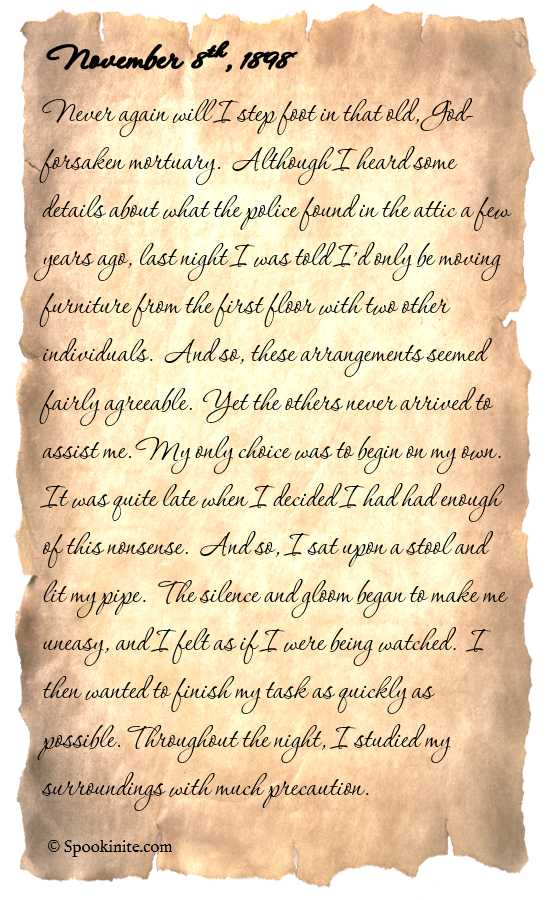 November 8th, 1898
Never again will I step foot in that old, God-
forsaken mortuary. Although I heard some
details about what the police found in the attic a few
years ago, last night I was told I'd only be moving
furniture from the first floor with two other
individuals. And so, these arrangements seemed
fairly agreeable. Yet the others never arrived to
assist me. My only choice was to begin on my own.
It was quite late when I decided I had had enough
of this nonsense. And so, I sat upon a stool and
lit my pipe. The silence and gloom began to make me
uneasy, and I felt as if I were being watched. I
then wanted to finish my task as quickly as
possible. Throughout the night, I studied my
surroundings with much precaution.
© Spookinite.com